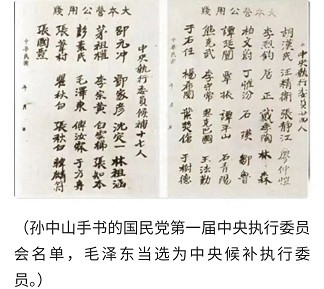 大本營公用牋
中央執行委員廿四人
胡漢民 汪精衛 張靜江 廖仲愷
李烈鈞 居正 戴季陶 林森
柏文蔚 丁惟汾 石瑛 鄒魯
譚延闓 覃振 譚平山 石青陽
熊克武 李守常 恩克巴圖 王法勤
于右任 楊希閔 葉楚傖 于樹德
中華民國 年 月 日
大本營公用牋
中央執行委員候補十七人
邵元冲 鄧家彥 沈定一 林祖涵
茅祖權 李宗黃 白雲梯 張知本
彭素民 毛澤東 傅汝霖 于方舟
張葦村 瞿秋白 張秋白 韓麟符
張國燾
中華民國 年 月 日
（孙中山手书的国民党第一届中央执行委员
会名单，毛泽东当选为中央候补执行委
员。）